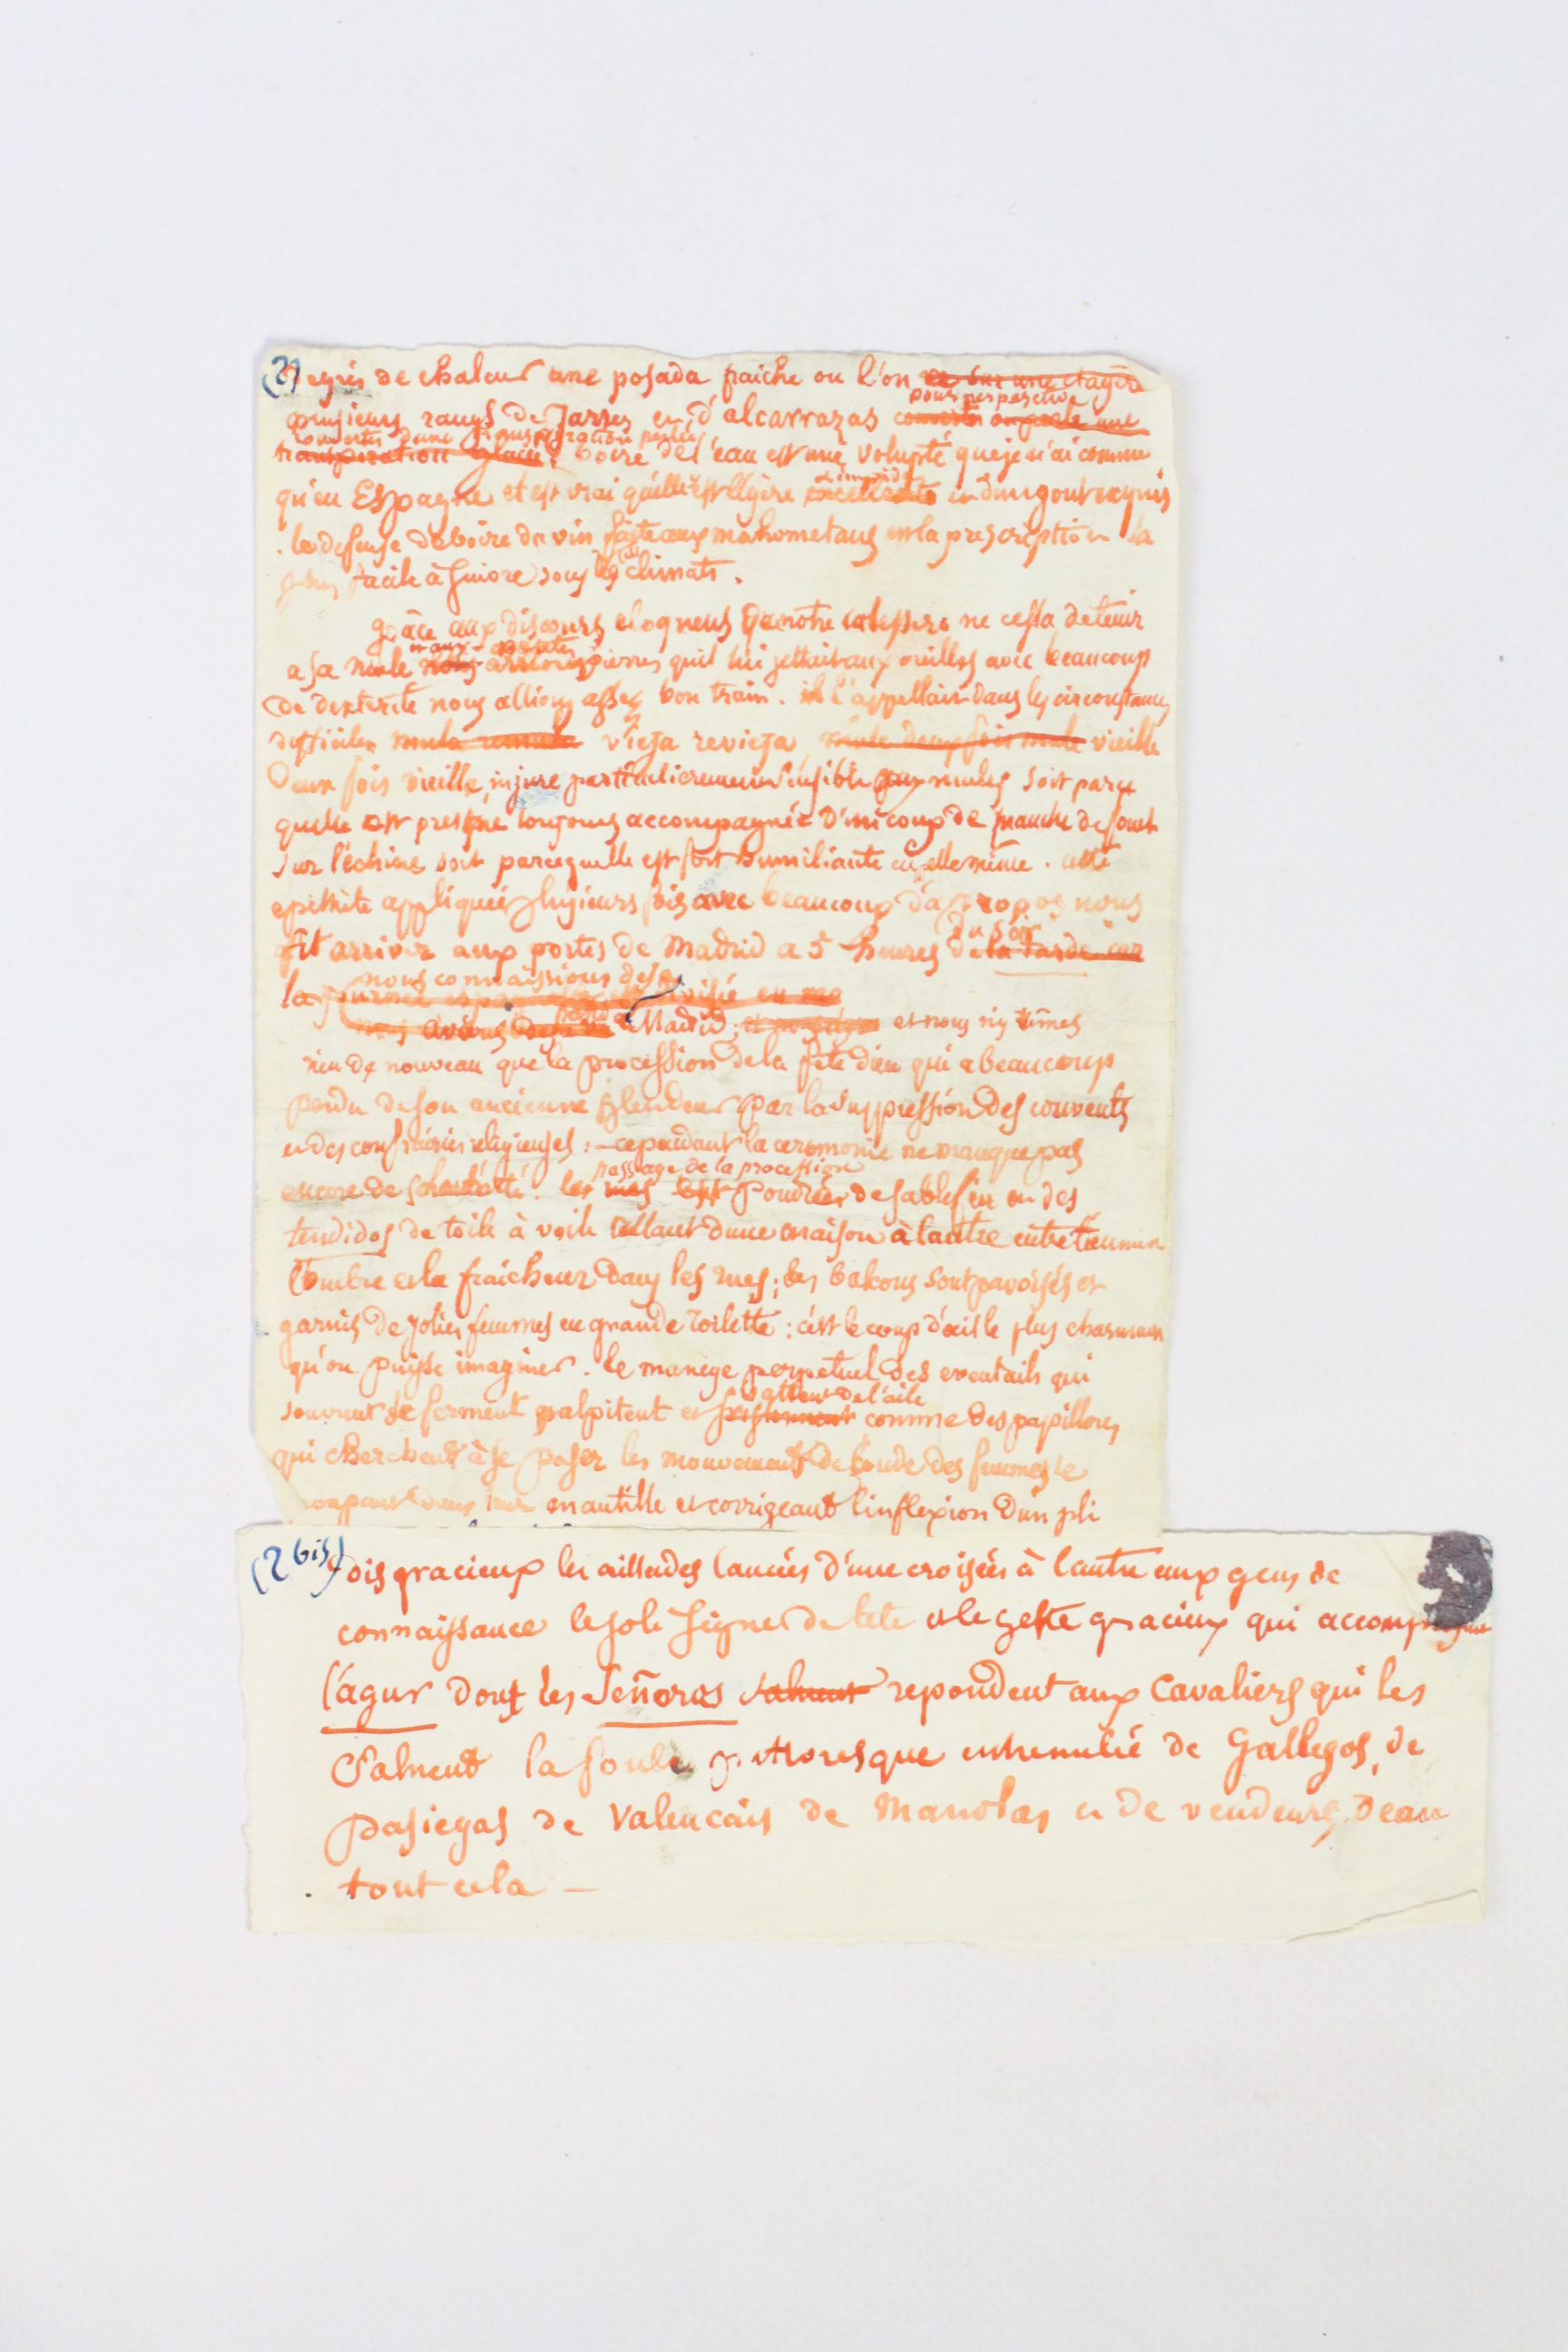 (2)
degrés de chaleur une posada fraiche ou l'on ne sur une etagère
pour perspective
plusieurs rangs de Jarres et d'alcarrazas couverts on parle une
couvertes d'une transpiration perlée
transpiration glacée; boire de l'eau est une volupté que je n'ai connue
limpide
qu'en Espagne et est vrai qu'elle est légère excellente et d'un gout exquis
. la defense de boire du vin faite aux mahometans est la prescription la
plus facile à suivre sous les climats.
grâce aux discours eloquens que notre calessero ne cessa de tenir
et aux petites
a sa mule nous arrivons pierres quil lui jettait aux oreilles avec beaucoup
de dexterité nous allions assez bon train. il l'appellait dans les circonstances
difficiles mula remula vieja revieja, mule deux fois mule vieille
deux fois vieille, injure particulierement sensible aux mules soit parce
quelle est presque toujours accompagnée d'un coup de manche de fouet
sur l'échine soit parcequelle est fort humiliante en ellemême. cette
epithète appliquée plusieurs fois avec beaucoup d'a propos nous
du soir
fit arriver aux portes de Madrid a 5 heures de la tarde car
nous connaissions deja
la journée est divisée en
nous avions deja Madrid; et nous ny vimes
rien de nouveau que la procession de la fête dieu qui a beaucoup
perdu de son ancienne splendeur par la suppression des couvents
et des confrairies religieuses: - cependant la ceremonie ne manque pas
passage de la procession
encore de solennité. les rues est poudrées de sable fin et des
tendidos de toile à voile allant dune maison à lautre entretiennent
l'ombre et la fraicheur dans les rues; les balcons sont pavoisés et
garnis de jolies femmes en grande toilette: cést le coup d'œil le plus charmant
qu'on puisse imaginer. le manege perpetuel des eventails qui
battent de l'aile
souvrent se ferment palpitent et comme des papillons
qui cherchent à se poser les mouvements de coude des femmes se
groupant dans leur mantille et corrigeant l'inflexion d'un pli
(2 bis)
disgracieux les œillades lancées d'une croisées à l'autre aux gens de
connaissance le joli signe de tete et le geste gracieux qui accompagne
l'agur dont les Señoras saluent repondent aux cavaliers qui les
saluent la foule pittoresque entremêlé de Gallegos, de
pasiegas de Valencais de Manolas et de vendeurs deau
tout cela —